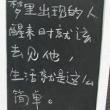 梦里出现的人
醒来时就该
去见他,
生活就是这么
简单。